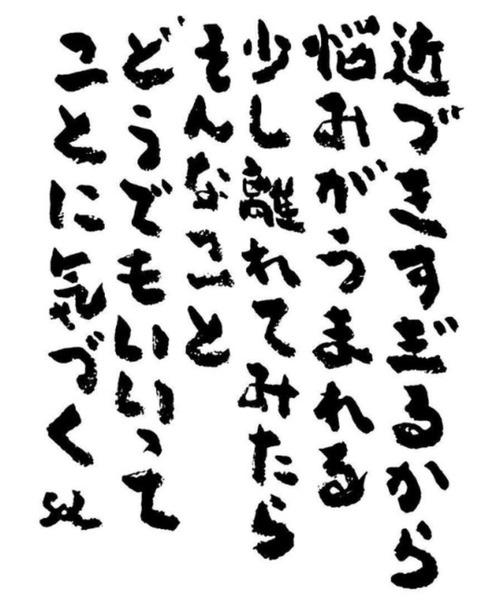 近づきすぎるから
悩みがうまれる
少し離れてみたら
そんなこと
どうでもいいって
ことに気づくよ